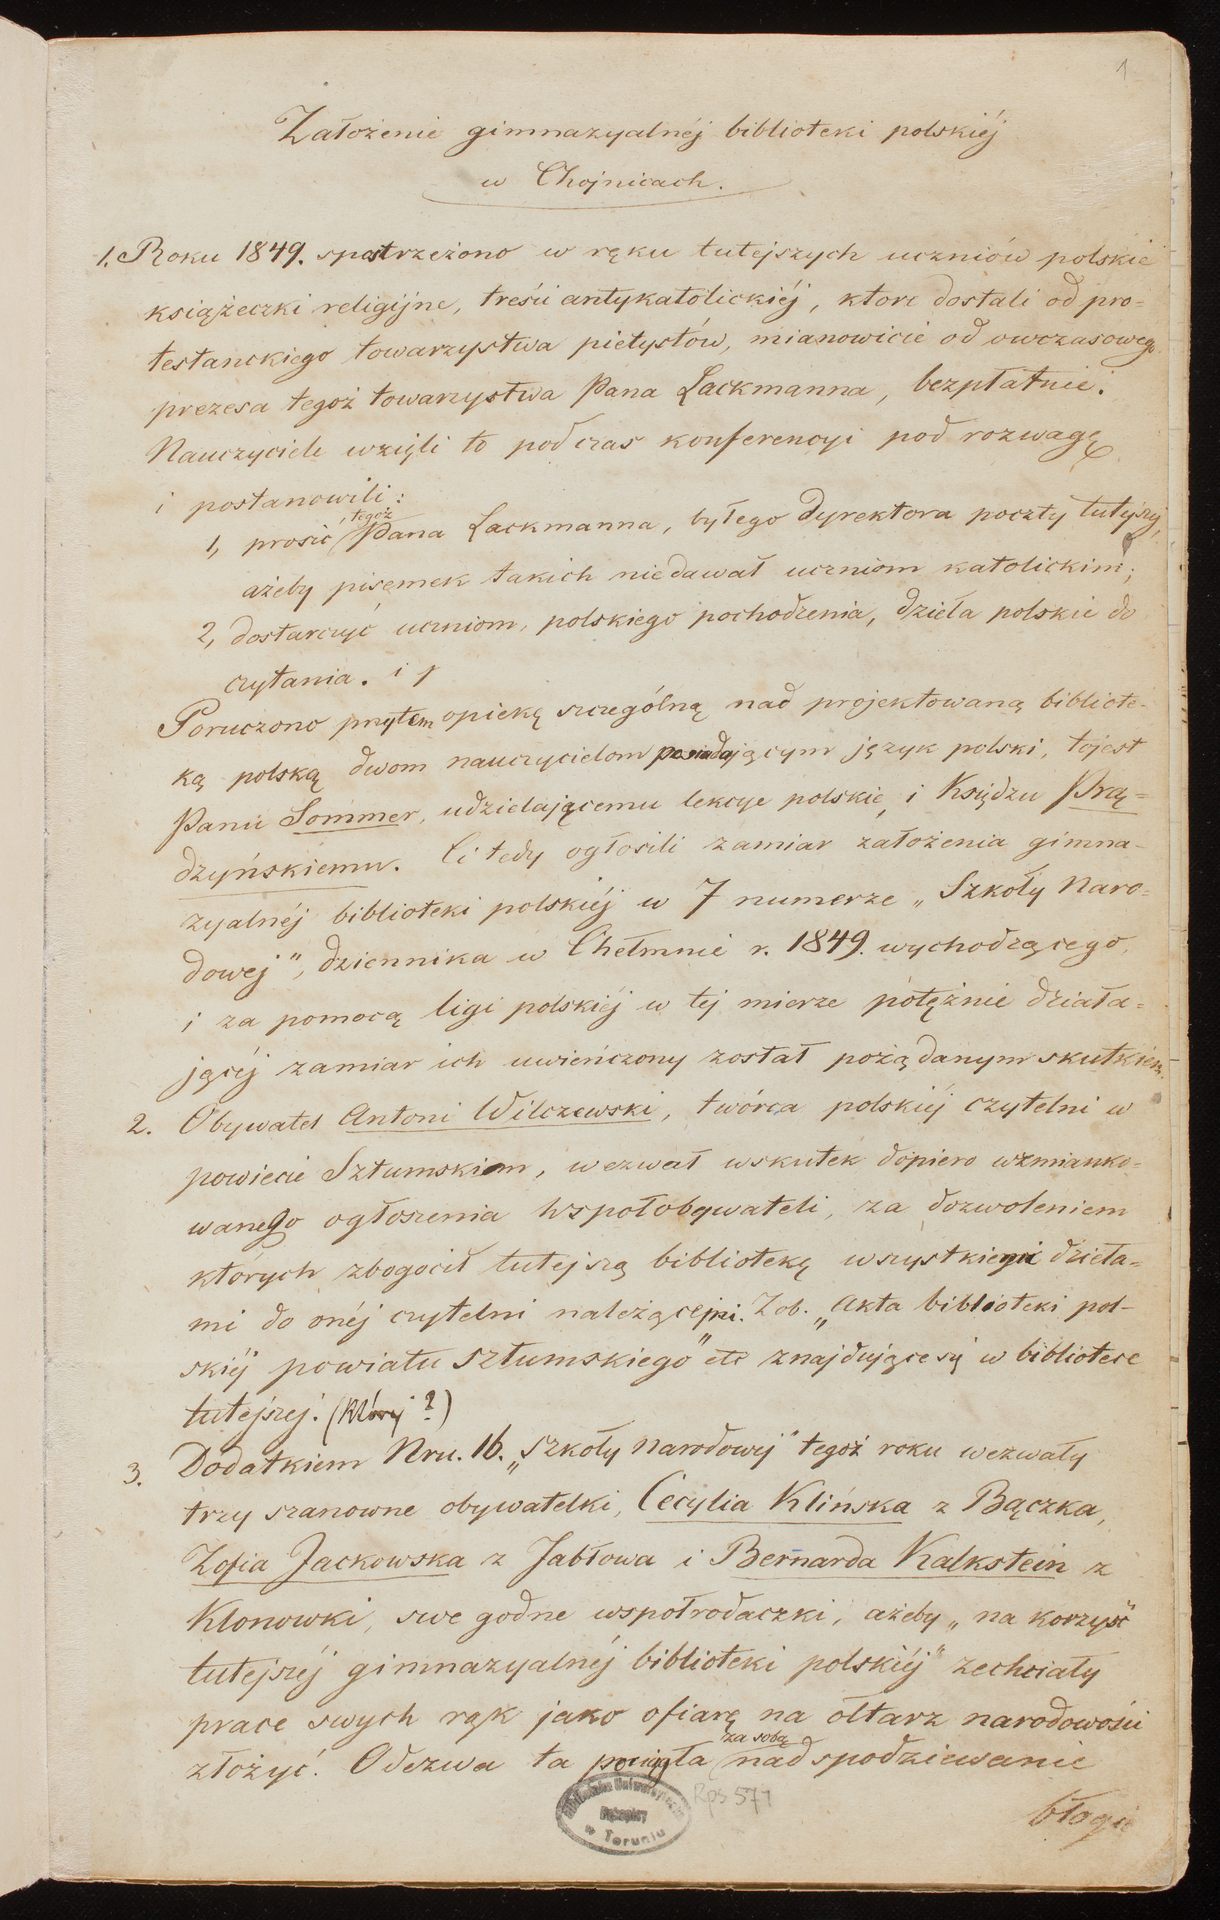 1
Założenie gimnazyalnéj biblioteki polskiéj
w Chojnicach.
1. Roku 1849. spostrzeżono w ręku tutejszych uczniów polskie
książeczki religijne, treści antykatolickiéj, ktore dostali od pro-
testanckiego towarzystwa pietystów, mianowicie od owczasowego
prezesa tegoż towarzystwa Pana Lackmanna, bezpłatnie.
Nauczyciele wzięli to podczas konferencyi pod rozwagę
i postanowili:
1, prosić tegoż Pana Lackmanna, byłego dyrektora poczty tutejszej,
ażeby pisemek takich niedawał uczniom katolickim;
2, dostarczyć uczniom, polskiego pochodzenia, dzieła polskie do
czytania.
Poruczono przytem opiekę szczególną nad projektowaną bibliote-
ką polską dwom nauczycielom posiadającym język polski, tojest
Panu Sommer, udzielającemu lekcye polskie, i Księdzu Prą-
dzyńskiemu. Ci tedy ogłosili zamiar założenia gimna-
zyalnéj biblioteki polskiéj w 7 numerze „Szkoły Naro-
dowej", dziennika w Chełmnie r. 1849. wychodzącego,
i za pomocą ligi polskiéj w tej mierze potężnie działa-
jącéj zamiar ich uwieńczony został pożądanym skutkiem.
2. Obywatel Antoni Wilczewski, twórca polskiéj czytelni w
powiecie Sztumskiem, wezwał wskutek dopiero wzmianko-
wanego ogłoszenia współobywateli, za dozwoleniem
których zbogocił tutejszą bibliotekę wszystkiemi dzieła-
mi do onéj czytelni należącemi. Zob. „Akta biblioteki pol-
skiéj powiatu Sztumskiego" etc znajdujące są w bibliotece
tutejszej. (Któréj ?)
3. Dodatkiem Nru. 16. „Szkoły narodowej" tegoż roku wezwały
trzy szanowne obywatelki, Cecylia Klińska z Bączka,
Zofia Jackowska z Jabłowa i Bernarda Kalkstein z
Klonowki, swe godne wspołrodaczki, ażeby „na korzyść
tutejszéj gimnazyalnéj biblioteki polskiéj" zechciały
prace swych rąk jako ofiarę na ołtarz narodowości
złożyć. Odezwa ta pociągła za sobą nadspodziewanie
błogie
Biblioteka Uniwersytecka
Rękopisy
w Toruniu
Rps 571